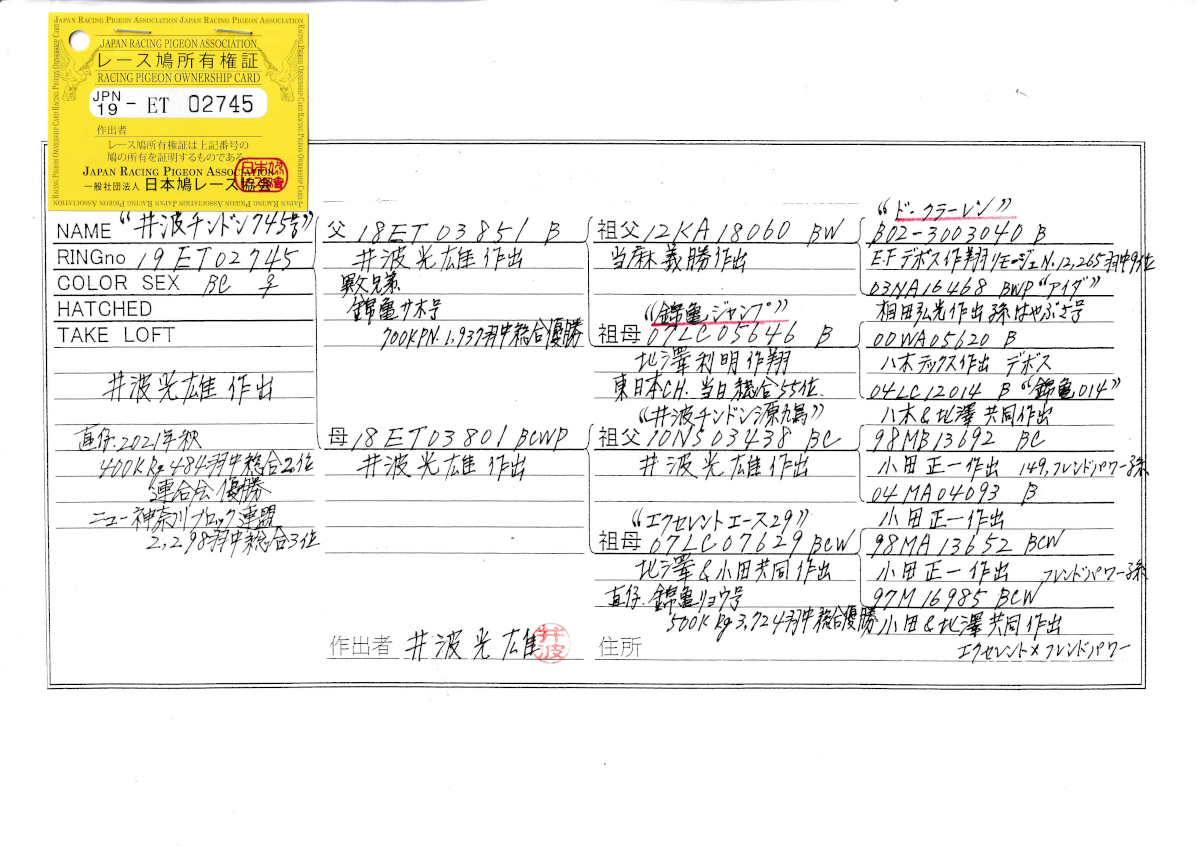 JAPAN RACING PIGEON ASSOCIATION JAPAN RACING PIGEON ASSOCIATION
JAPAN RACING PIGEON ASSOCIATION
レース鳩所有権証
RACING PIGEON OWNERSHIP CARD
JPN
19 - ET 02745
作出者
レース鳩所有権証は上記番号の
鳩の所有を証明するものである
JAPAN RACING PIGEON ASSOCIATION
一般社団法人 日本鳩レース協会
NAME "井波チンドン745吉"
RINGno 19ET02745
COLOR SEX BC ♀
HATCHED
TAKE LOFT
井波光雄作出
直仔.2021年秋
400Kg 484羽中総合2位
連合会優勝
ニュー神奈川ブロック連盟
2,298羽中総合3位
父 18ET03851 B
井波光雄作出
異父兄弟
錦亀サホ号
700KPN.1,937羽中総合優勝
母 18ET03801 BCWP
井波光雄作出
作出者 井波光雄
井波
祖父 12KA18060 BW
当麻義勝作出
"錦亀ジャンプ"
祖母 07LC05646 B
北澤利明作翔
東日本CH.当日総合55位.
"井波チンドン源九島"
祖父 10NS03438 BC
井波光雄作出
"エクセレントエース29"
祖母 07LC07629 BCW
北澤&小田共同作出
直仔.錦亀リョウ号
500Kg 3,724羽中総合優勝
住所
"ド・クラーレン"
B02-3003040 B
E.Fデボス作翔リモージュN.12,265羽中9位
03NA16468 BWP "アイダ"
相田弘光作出 孫はやぶさ号
00WA05620 B
八木テックス作出 デボス
04LC12014 B "錦亀014"
八木&北澤共同作出
98MB13692 BC
小田正一作出 149,フレンドパワー孫
04MA04093 B
小田正一作出
98MA13652 BCW
小田正一作出 フレンドパワー孫
97M16985 BCW
小田&北澤共同作出
エクセレント×フレンドパワー